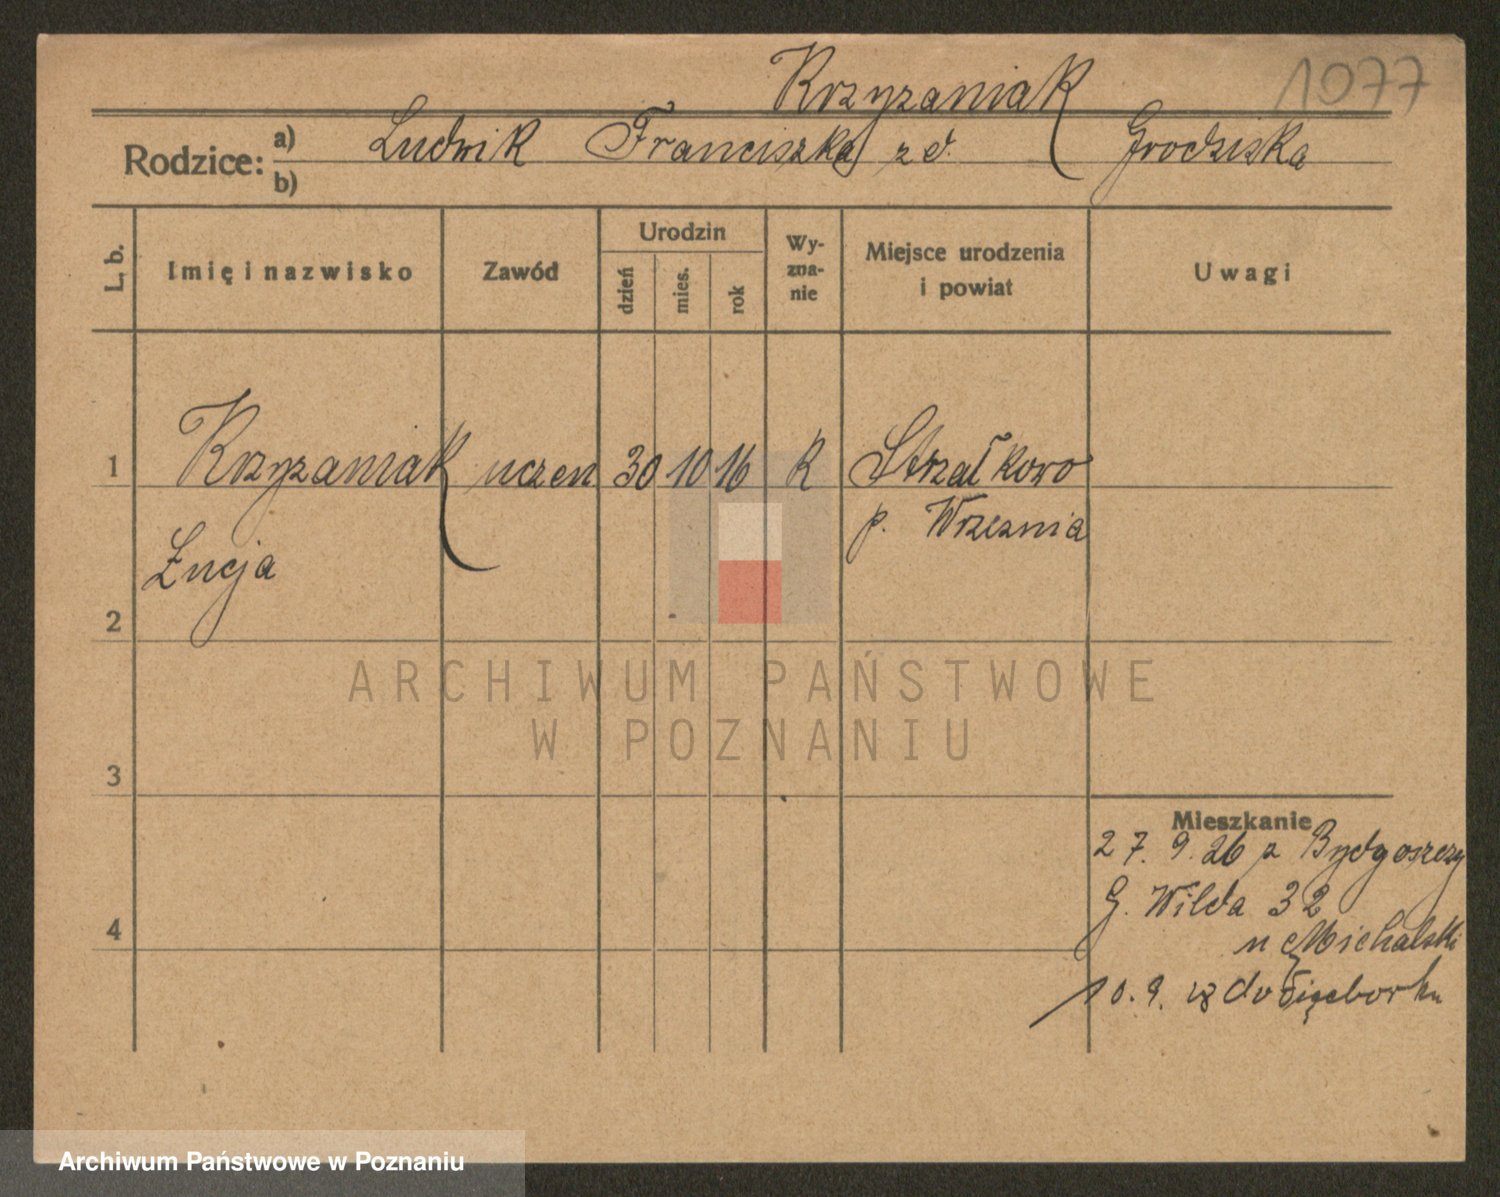 Krzyzaniak
1077
Rodzice: a) Ludwik Franciszka z d. Grodziska
b)
L. b.
Imię i nazwisko
Zawód
Urodzin
dzień
mies.
rok
Wy-
zna-
nie
Miejsce urodzenia
i powiat
Uwagi
1 Krzyzaniak uczen 30 10 16 K Strzałkowo
p. Wrzesnia
Łucja
2
ARCHIWUM PAŃSTWOWE
W POZNANIU
3
Mieszkanie
27. 9. 26 z Bydgoszczy
G. Wilda 32
4
u Michalski
10. 9. 28 do Więcborku
Archiwum Państwowe w Poznaniu